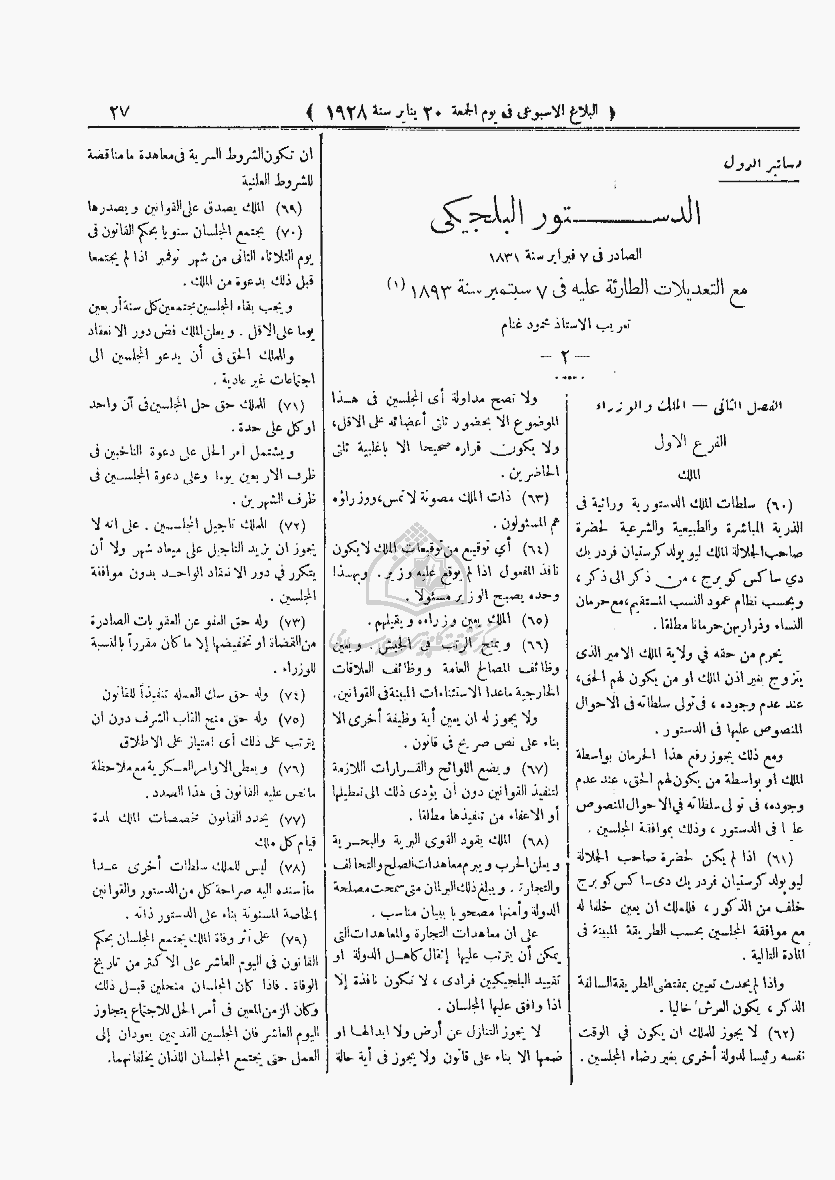 ﴿ البلاغ الاسبوعى فى يوم الجمعة ٢٠ يناير سنة ١٩٢٨ ﴾
٢٧
دساتير الدول
الدستور البلجيكى
الصادر فى ٧ فبراير سنة ١٨٣١
مع التعديلات الطارئة عليه فى ٧ سبتمبر سنة ١٨٩٣ (١)
تعريب الاستاذ محمود غنام
— ٢ —
الفصل الثانى — الملك والوزراء
الفرع الاول
الملك
(٦٠) سلطات الملك الدستورية وراثية فى
الذرية المباشرة والطبيعية والشرعية لحضرة
صاحب الجلالة الملك ليوبولد كرستيان فردريك
دي ساكس كوبرج ، من ذكر الى ذكر ،
وبحسب نظام عمود النسب المستقيم، مع حرمان
النساء وذراريهن حرمانا مطلقا .
يحرم من حقه في ولاية الملك الامير الذى
يتزوج بغير اذن الملك او من يكون لهم الحق،
عند عدم وجوده ، فى تولى سلطاته فى الاحوال
المنصوص عليها فى الدستور .
ومع ذلك يجوز رفع هذا الحرمان بواسطة
الملك او بواسطة من يكون لهم الحق، عند عدم
وجوده، فى تولى سلطاته في الاحوال المنصوص
عليها فى الدستور ، وذلك بموافقة المجلسين .
(٦١) اذا لم يكن لحضرة صاحب الجلالة
ليوبولد كرستيان فردريك دى ساكس كوبرج
خلف من الذكور ، فللملك ان يعين خلفا له
مع موافقة المجلسين بحسب الطريقة المبينة فى
المادة التالية .
واذا لم يحدث تعيين بمقتضى الطريقة السالفة
الذكر ، يكون العرش خاليا .
(٦٢) لا يجوز للملك ان يكون في الوقت
نفسه رئيسا لدولة أخرى بغير رضاء المجلسين .
ولا تصح مداولة أى المجلسين فى هذا
الموضوع الا بحضور ثلثى أعضائه على الاقل،
ولا يكون قراره صحيحا الا باغلبية ثلثى
الحاضرين .
(٦٣) ذات الملك مصونة لا تمس، ووزراؤه
هم المسئولون .
(٦٤) أي توقيع من توقيعات الملك لا يكون
نافذ المفعول اذا لم يوقع عليه وزير . وبهذا
وحده يصبح الوزير مسئولا .
(٦٥) الملك يعين وزراءه ويقيلهم .
(٦٦) ويمنح الرتب فى الجيش . ويعين
وظائف المصالح العامة ووظائف العلاقات
الخارجية ماعدا الاستثناءات المبينة فى القوانين.
ولا يجوز له ان يعين أية وظيفة أخرى الا
بناء على نص صريح فى قانون .
(٦٧) ويضع اللوائح والقرارات اللازمة
لتنفيذ القوانين دون أن يؤدى ذلك الى تعطيلها
أو الاعفاء من تنفيذها مطلقا .
(٦٨) الملك يقود القوى البرية والبحرية
ويعلن الحرب ويبرم معاهدات الصلح والتحالف
والتجارة . ويبلغ ذلك البرلمان متى سمحت مصلحة
الدولة وأمنها مصحوبا ببيان مناسب .
على أن معاهدات التجارة والمعاهدات التى
يمكن أن يترتب عليها إثقال كاهل الدولة او
تقييد البلجيكيين فرادى ، لا تكون نافذة إلا
اذا وافق عليها المجلسان .
لا يجوز التنازل عن أرض ولا ابدالها او
ضمها الا بناء على قانون ولا يجوز فى أية حالة
ان تكون الشروط السرية فى معاهدة ما مناقضة
للشروط العلنية
(٦٩) الملك يصدق على القوانين ويصدرها
(٧٠) يجتمع المجلسان سنويا بحكم القانون فى
يوم الثلاثاء الثانى من شهر نوفمبر اذا لم يجتمعا
قبل ذلك بدعوة من الملك .
ويجب بقاء المجلسين مجتمعين كل سنة أربعين
يوما على الاقل . ويعلن الملك فض دور الانعقاد
وللملك الحق فى أن يدعو المجلسين الى
اجتماعات غير عادية .
(٧١) للملك حق حل المجلسين فى آن واحد
او كل على حدة .
ويشتمل امر الحل على دعوة الناخبين فى
ظرف الاربعين يوما وعلى دعوة المجلسين فى
ظرف الشهرين .
(٧٢) للملك تاجيل المجلسين . على انه لا
يجوز ان يزيد التاجيل على ميعاد شهر ولا أن
يتكرر في دور الانعقاد الواحد بدون موافقة
المجلسين .
(٧٣) وله حق العفو عن العقوبات الصادرة
من القضاة او تخفيضها إلا ما كان مقرراً بالنسبة
للوزراء .
(٧٤) وله حق سك العملة تنفيذاً للقانون
(٧٥) وله حق منح القاب الشرف دون ان
يترتب على ذلك أى امتياز على الاطلاق
(٧٦) ويعطى الاوامر العسكرية مع ملاحظة
ما نص عليه القانون فى هذا الصدد .
(٧٧) يحدد القانون مخصصات الملك لمدة
قيام كل ملك
(٧٨) ليس للملك سلطات أخرى عدا
ما أسنده اليه صراحة كل من الدستور والقوانين
الخاصة المسنونة بناء على الدستور ذاته .
(٧٩) على أثر وفاة الملك يجتمع المجلسان بحكم
القانون فى اليوم العاشر على الاكثر من تاريخ
الوفاة . فاذا كان المجلسان منحلين قبل ذلك
وكان الزمن المعين فى أمر الحل للاجتماع يتجاوز
اليوم العاشر فان المجلسين القديمين يعودان إلى
العمل حتى يجتمع المجلسان اللذان يخلفانهما.